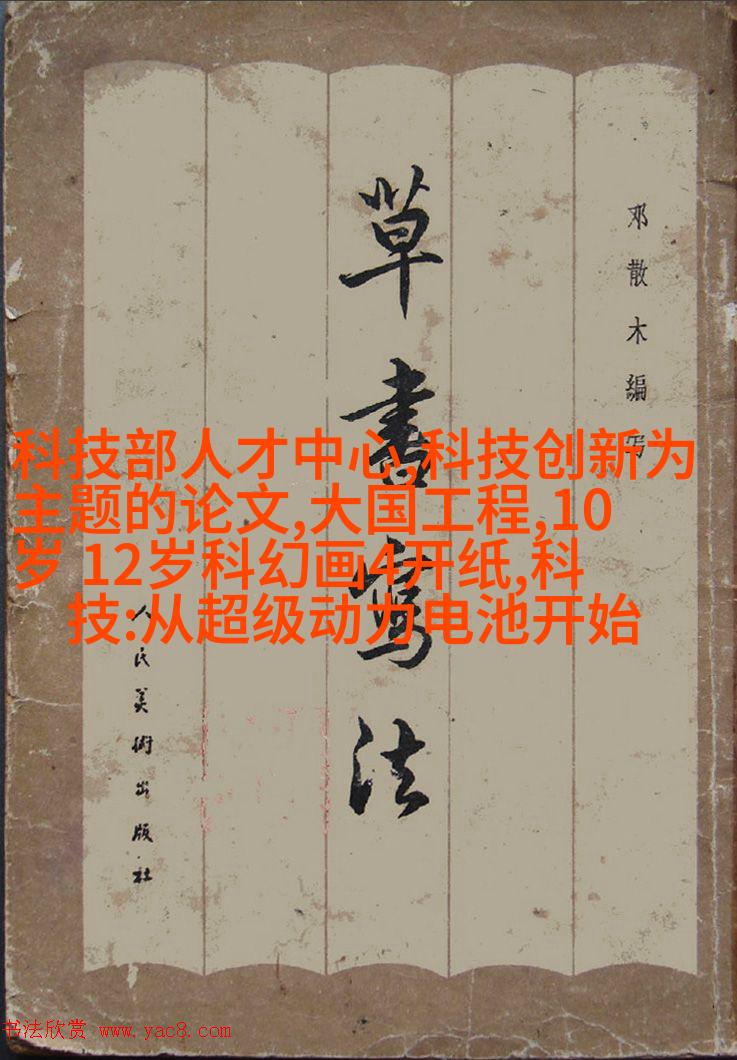 邓散木編写
草書寫法
人民美術出版社
科技部人才中心,科技创新为
主题的论文,大国工程,10
岁 12岁科幻画4开纸,科
技:从超级动力电池开始
书法欣赏 www.yac8.com